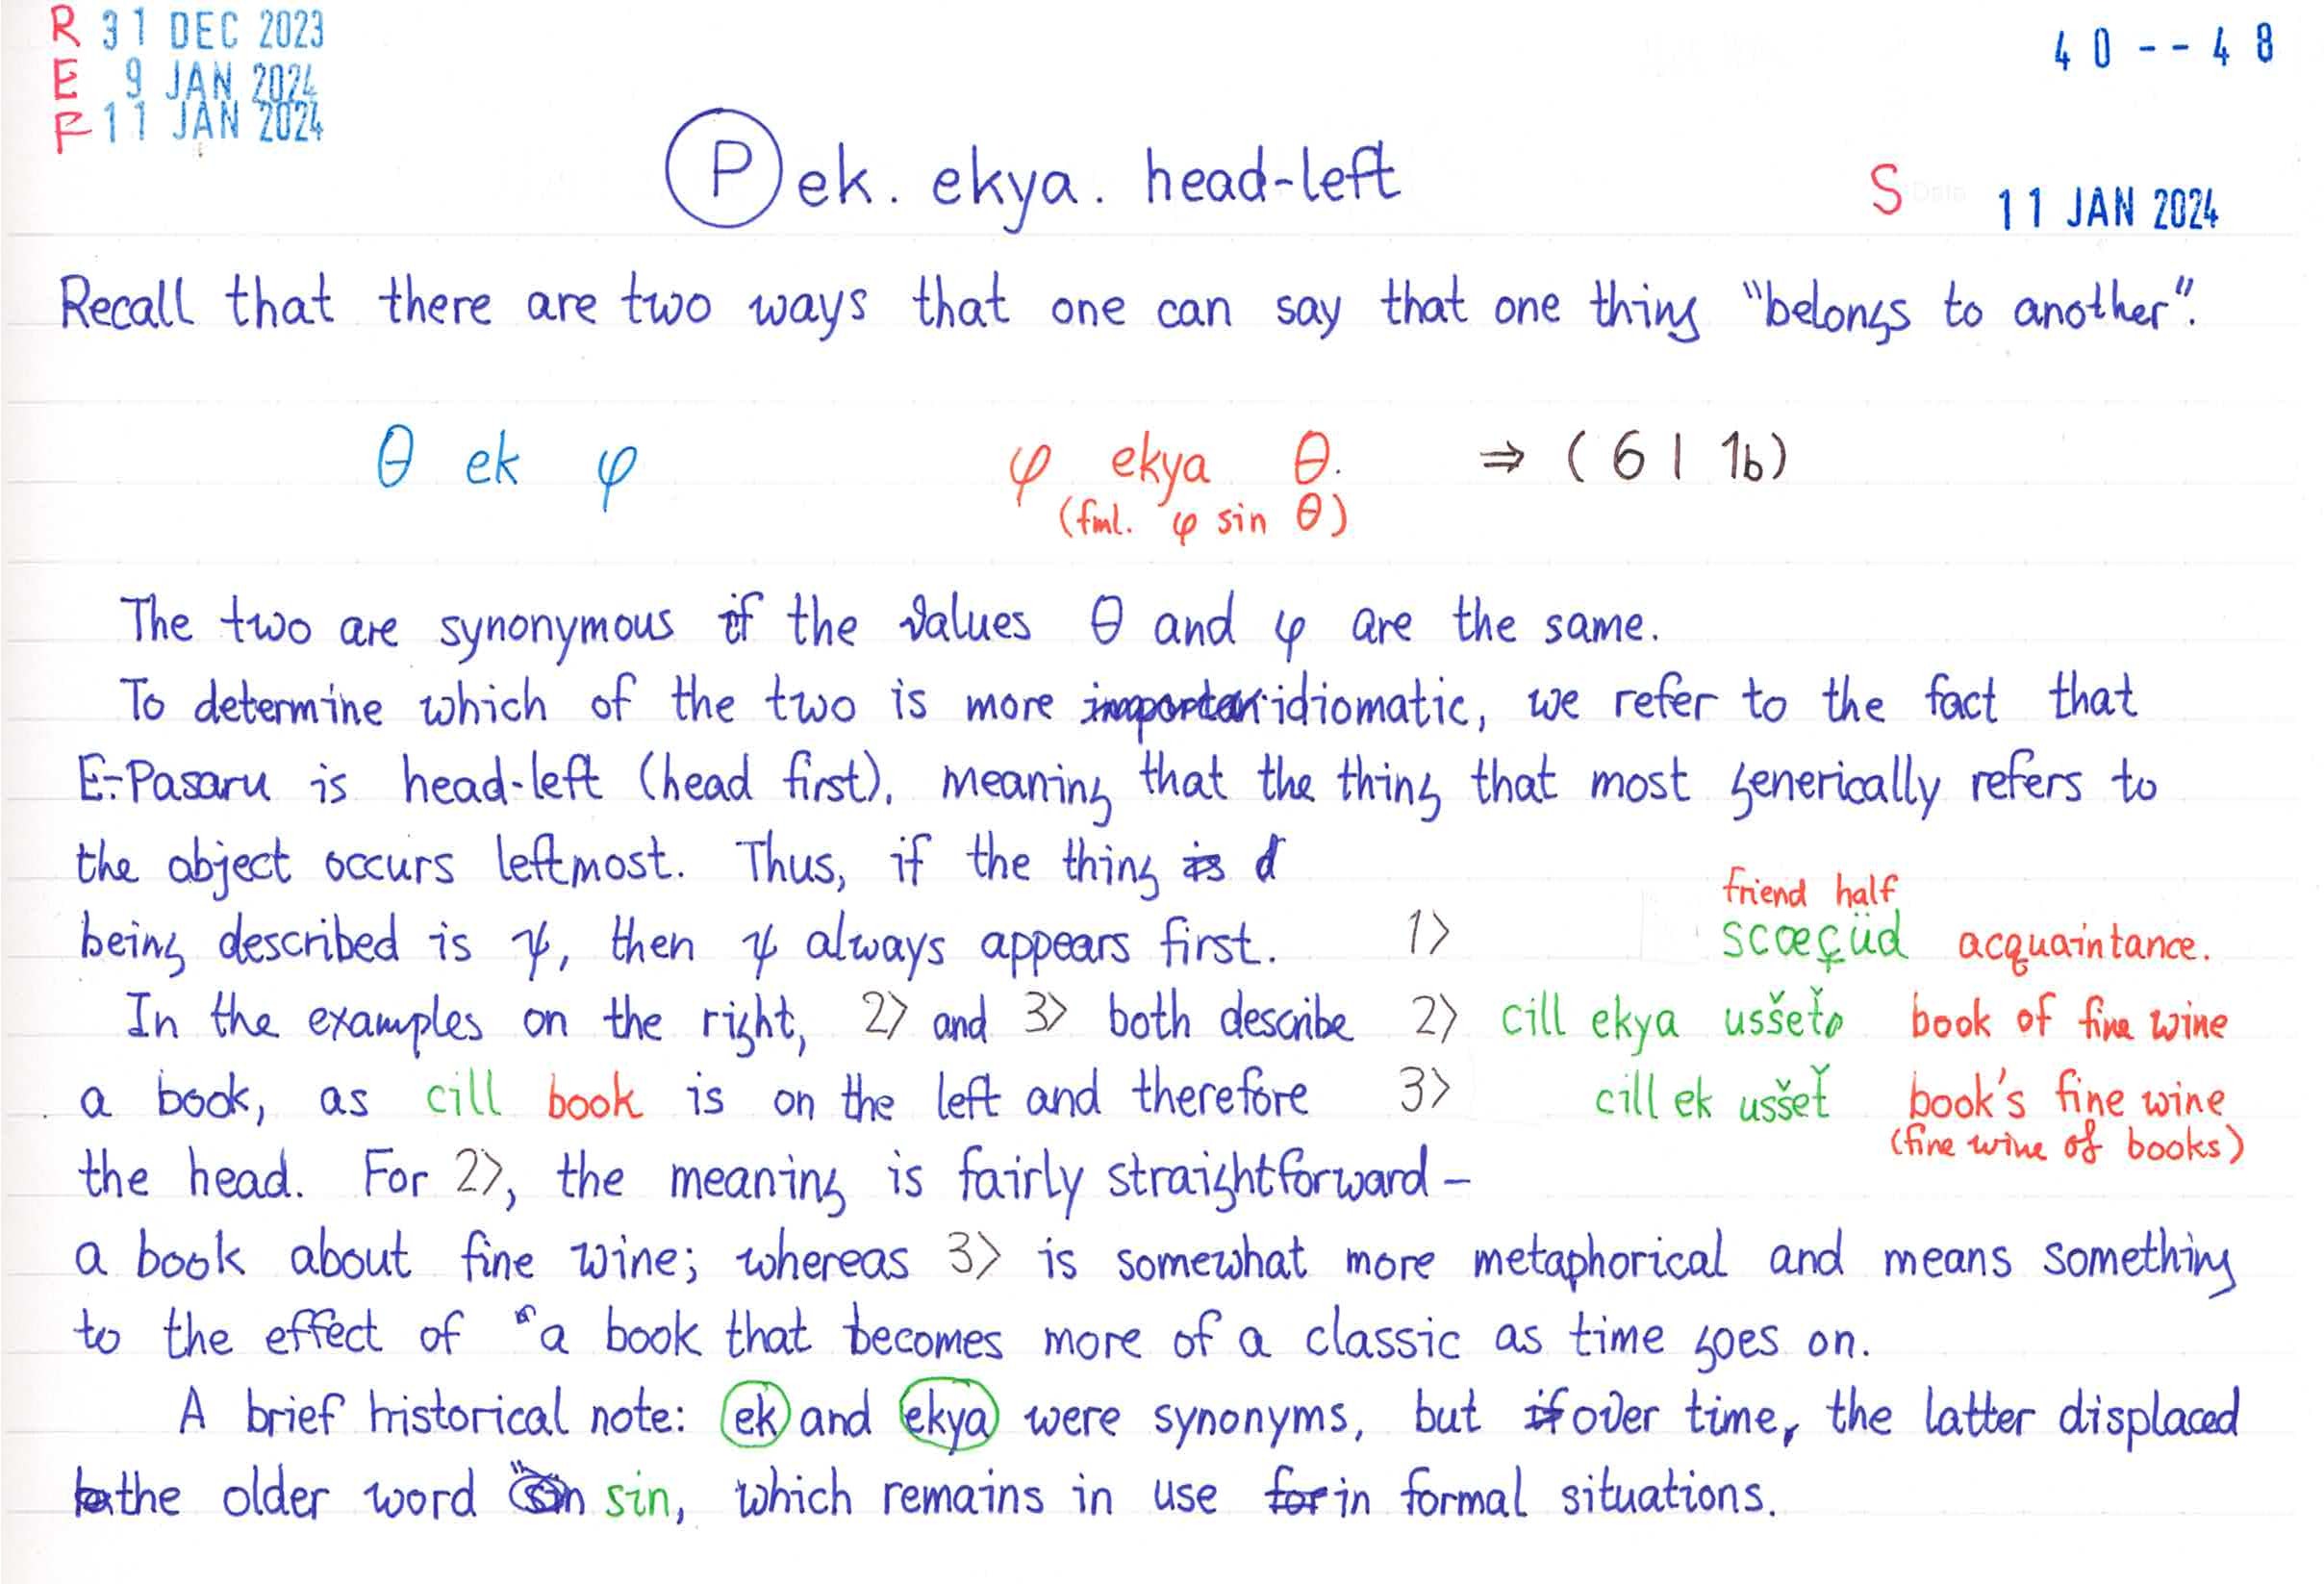 R 31 DEC 2023
E 9 JAN 2024
F 11 JAN 2024
40--48
P ek. ekya. head-left
S 11 JAN 2024
Recall that there are two ways that one can say that one thing "belongs to another".
θ ek φ φ ekya θ. ⇒ (6 | 1b)
(fml. φ sin θ)
The two are synonymous if the values θ and φ are the same.
To determine which of the two is more importan idiomatic, we refer to the fact that
E-Pasaru is head-left (head first), meaning that the thing that most generically refers to
the object occurs leftmost. Thus, if the thing is d
friend half
being described is ψ, then ψ always appears first. 1> scœçüd acquaintance.
In the examples on the right, 2> and 3> both describe 2> cill ekya uššeťo book of fine wine
a book, as cill book is on the left and therefore 3> cill ek uššeť book's fine wine
(fine wine of books)
the head. For 2>, the meaning is fairly straightforward –
a book about fine wine; whereas 3> is somewhat more metaphorical and means something
to the effect of "a book that becomes more of a classic as time goes on.
A brief historical note: ek and ekya were synonyms, but if over time, the latter displaced
the older word sin, which remains in use for in formal situations.